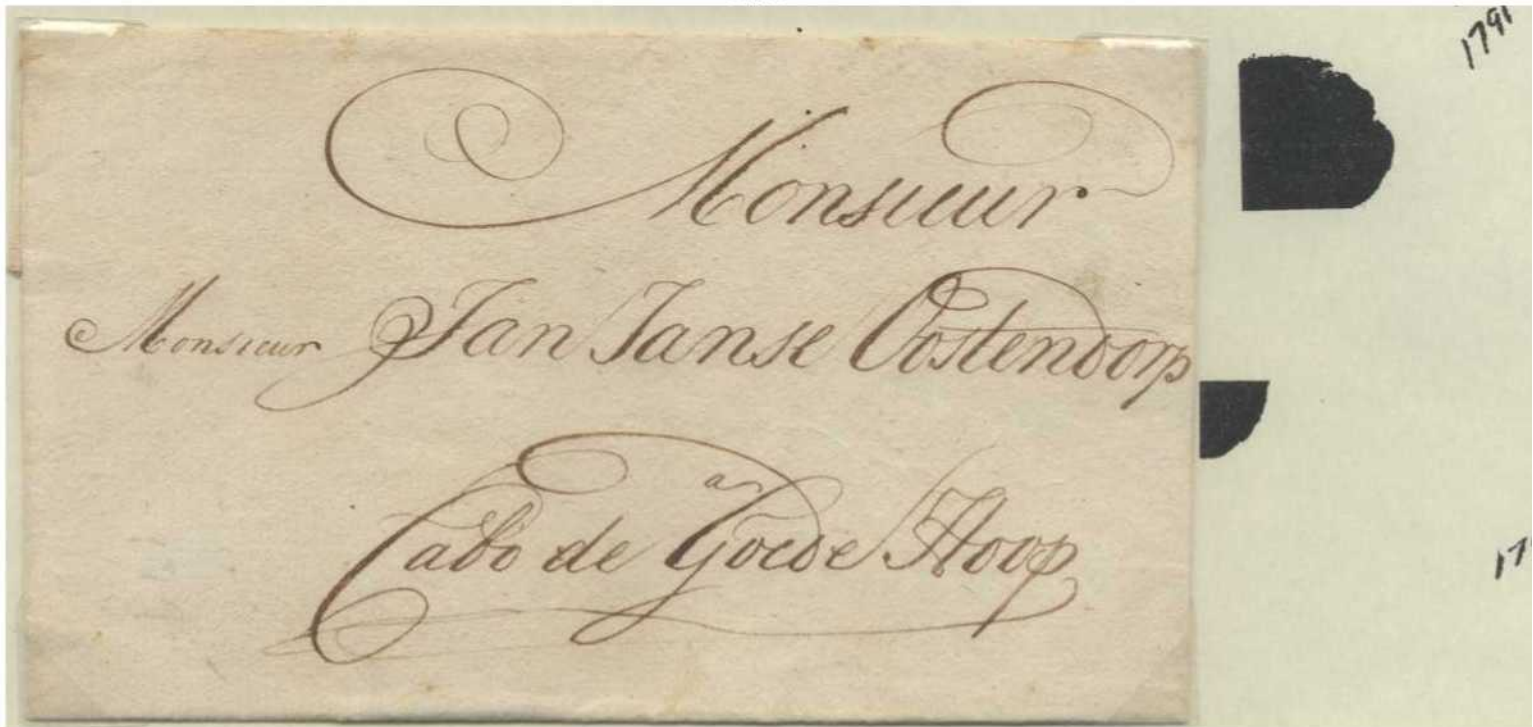 Monsieur
Monsieur Jan Janse Oostendorp
a
Cabo de Goede Hoop
1791
17